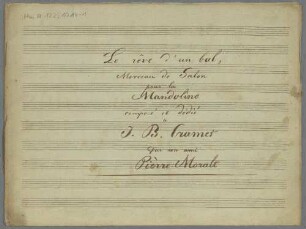 Le rêve d'un bal,
Morceau de Salon
pour la
Mandoline
composé et dédié
à
J. B. Cramer
par son ami
Pierre Moralt